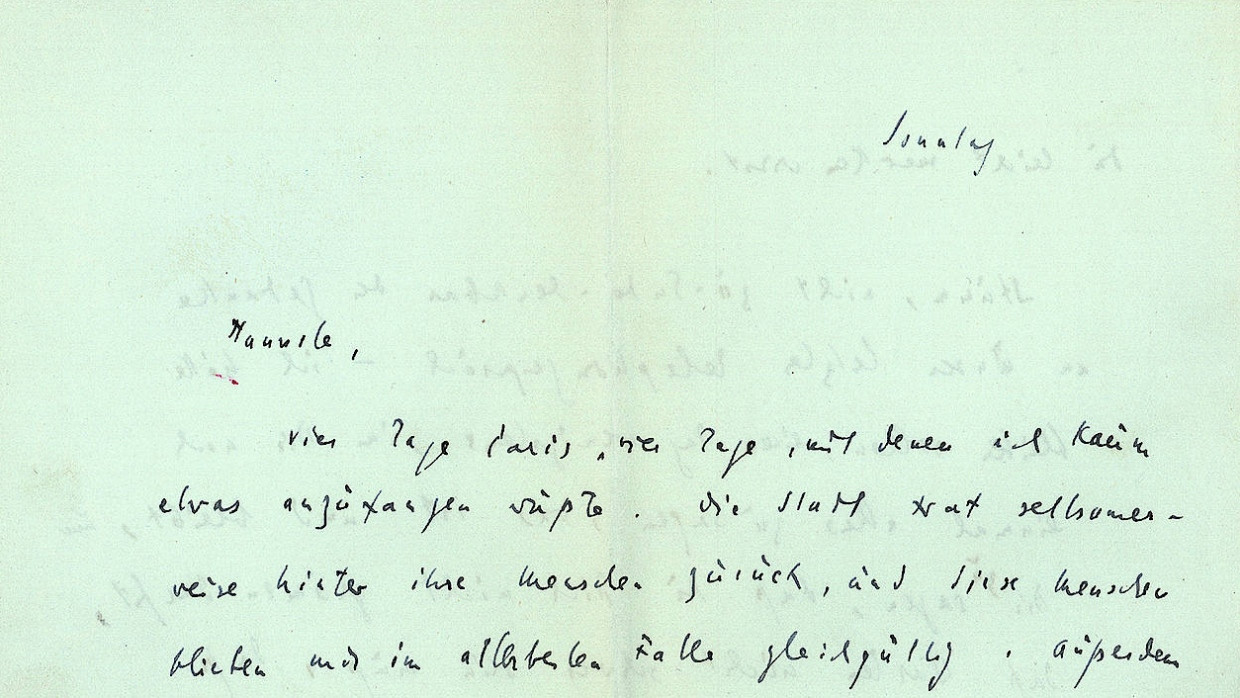 Sonntag
Hannele,
vier Tage Paris, vier Tage, mit denen ich kaum
etwas anzufangen wußte. Die Stadt trat seltsamer-
weise hinter ihre Menschen zurück, und diese Menschen
blieben mir im allerbesten Falle gleichgültig. Außerdem